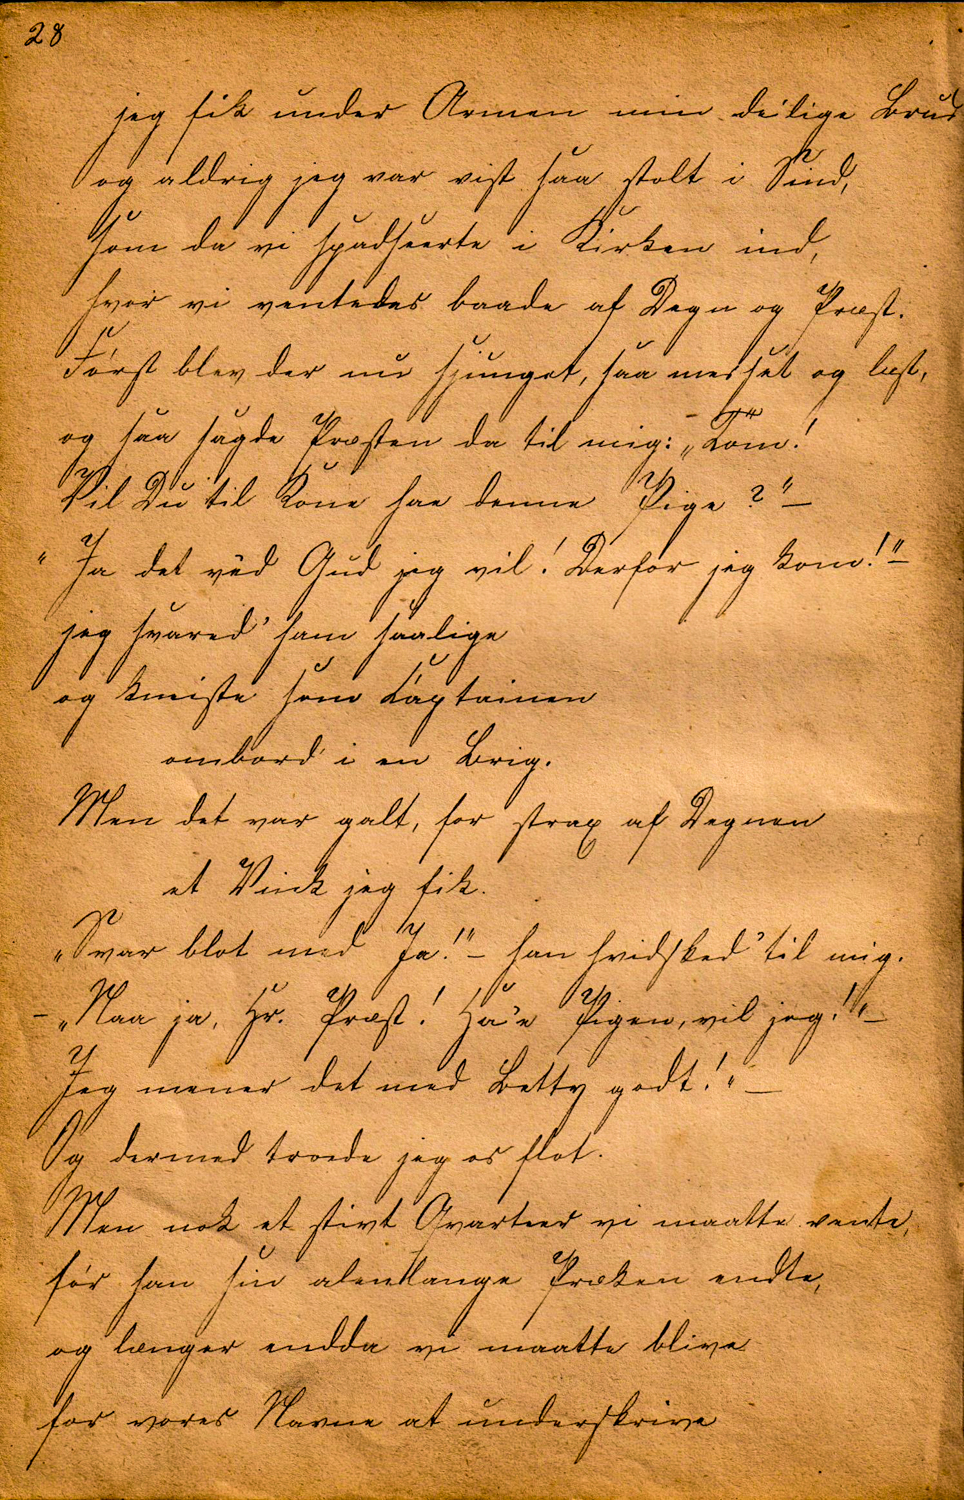 28
jeg fik under Armen min deilige Brud
og aldrig jeg var vist saa stolt i Sind,
som da vi spadseerte i Kirken ind,
hvor vi ventedes baade af Degn og Præst.
Først blev der nu sjunget, saa messet og læst,
og saa sagde Præsten da til mig: „Tom!
Vil Du til Kone hae denne Pige?" —
„Ja det véd Gud jeg vil! Derfor jeg kom!" —
jeg svared' ham saalige
og kneiste som Captainen
ombord i en Brig.
Men det var galt, for strax af Degnen
et Vink jeg fik.
„Svar blot med Ja!" — han hvidsked' til mig.
— „Naa ja, Hr. Præst! Ha'e Pigen, vil jeg!" —
Jeg mener det med Betty godt!" —
Og dermed troede jeg os flot.
Men nok et stivt Qvarteer vi maatte vente,
før han sin alenlange Præken endte,
og længer endda vi maatte blive
for vores Navne at underskrive